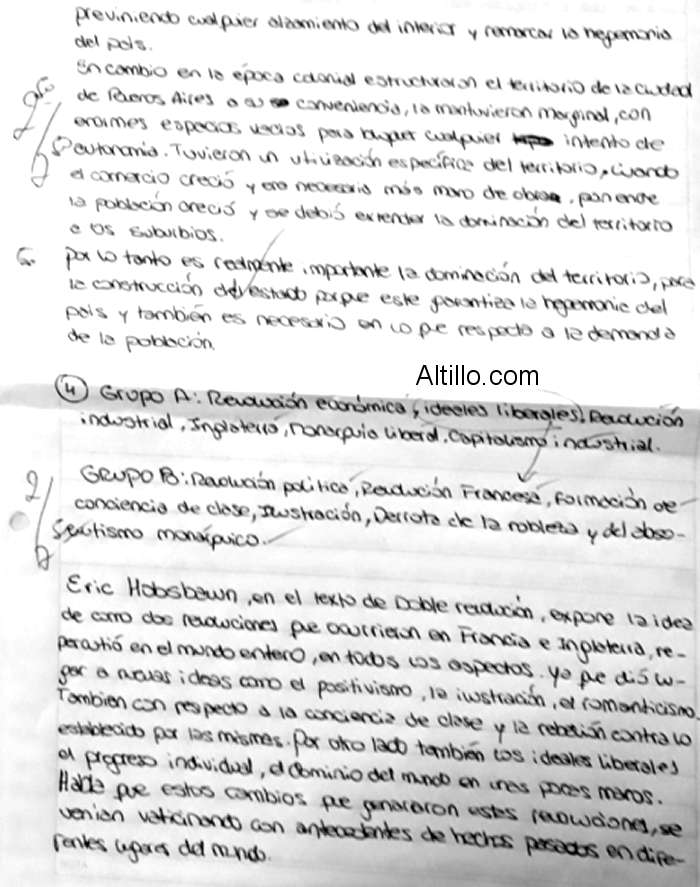 previniendo cualquier alzamiento del interior y remarcar la hegemonia
del país.
En cambio en la época colonial estructuraron el territorio de la ciudad
de Buenos Aires a su conveniencia, la mantuvieron marginal, con
enormes espacios vacios para bloquer cualquier intento de
autonomia. Tuvieron un utilización específica del territorio, cuando
el comercio creció y era necesaria más mano de obra, por ende
la población creció y se debió extender la dominación del territorio
a los suburbios.
Por lo tanto es realmente importante la dominación del territorio, para
la construcción del estado porque este garantiza la hegemonia del
país y también es necesario en lo que respecta a la demanda
de la población.
Altillo.com
4 Grupo A: Revolución económica, ideales liberales, Revolución
industrial, Inglaterra, Monarquia liberal, Capitalismo industrial.
2/ GRUPO B: Revolución política, Revolución Francesa, Formación de
conciencia de clase, Ilustración, Derrota de la nobleza y del abso-
lutismo monárquico.
Eric Hobsbawn, en el texto de Doble revolución, expone la idea
de como dos revoluciones que ocurrieron en Francia e Inglaterra, re-
percutió en el mundo entero, en todos los aspectos. Ya que dió lu-
gar a nuevas ideas como el positivismo, la ilustración, el romanticismo.
Tambien con respecto a la conciencia de clase y la rebelión contra lo
establecido por las mismas. Por otro lado también los ideales liberales
el progreso individual, el dominio del mundo en unas pocas manos.
Habla que estos cambios que generaron estas revoluciones, se
venian vaticinando con antecedentes de hechos pasados en dife-
rentes lugares del mundo.